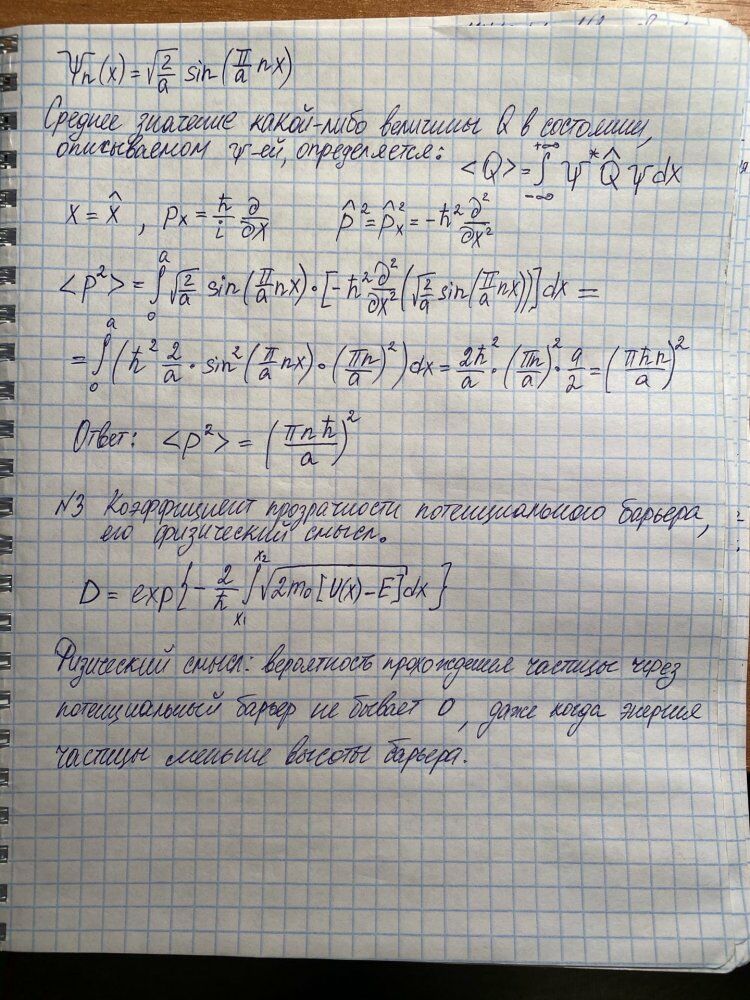 Ψn(x) = √(2/a) sin(π/a nx)
Среднее значение какой-либо величины Q в состоянии,
описываемом ψ-ей, определяется: <Q> = ∫_{-∞}^{+∞} Ψ* Q̂ Ψ dx
x = x̂, px = ħ/i ∂/∂x p̂² = p̂x² = -ħ² ∂²/∂x²
<p²> = ∫_0^a √(2/a) sin(π/a nx) · [-ħ² ∂²/∂x² (√(2/a) sin(π/a nx))] dx =
= ∫_0^a (ħ² 2/a · sin²(π/a nx) · (πn/a)²) dx = 2ħ²/a · (πn/a)² · a/2 = (πħn/a)²
Ответ: <p²> = (πnħ/a)²
№3 Коэффициент прозрачности потенциального барьера,
его физический смысл.
D = exp{-2/ħ ∫_{x1}^{x2} √(2m₀[U(x)-E]) dx}
Физический смысл: вероятность прохождения частицы через
потенциальный барьер не бывает 0, даже когда энергия
частицы меньше высоты барьера.